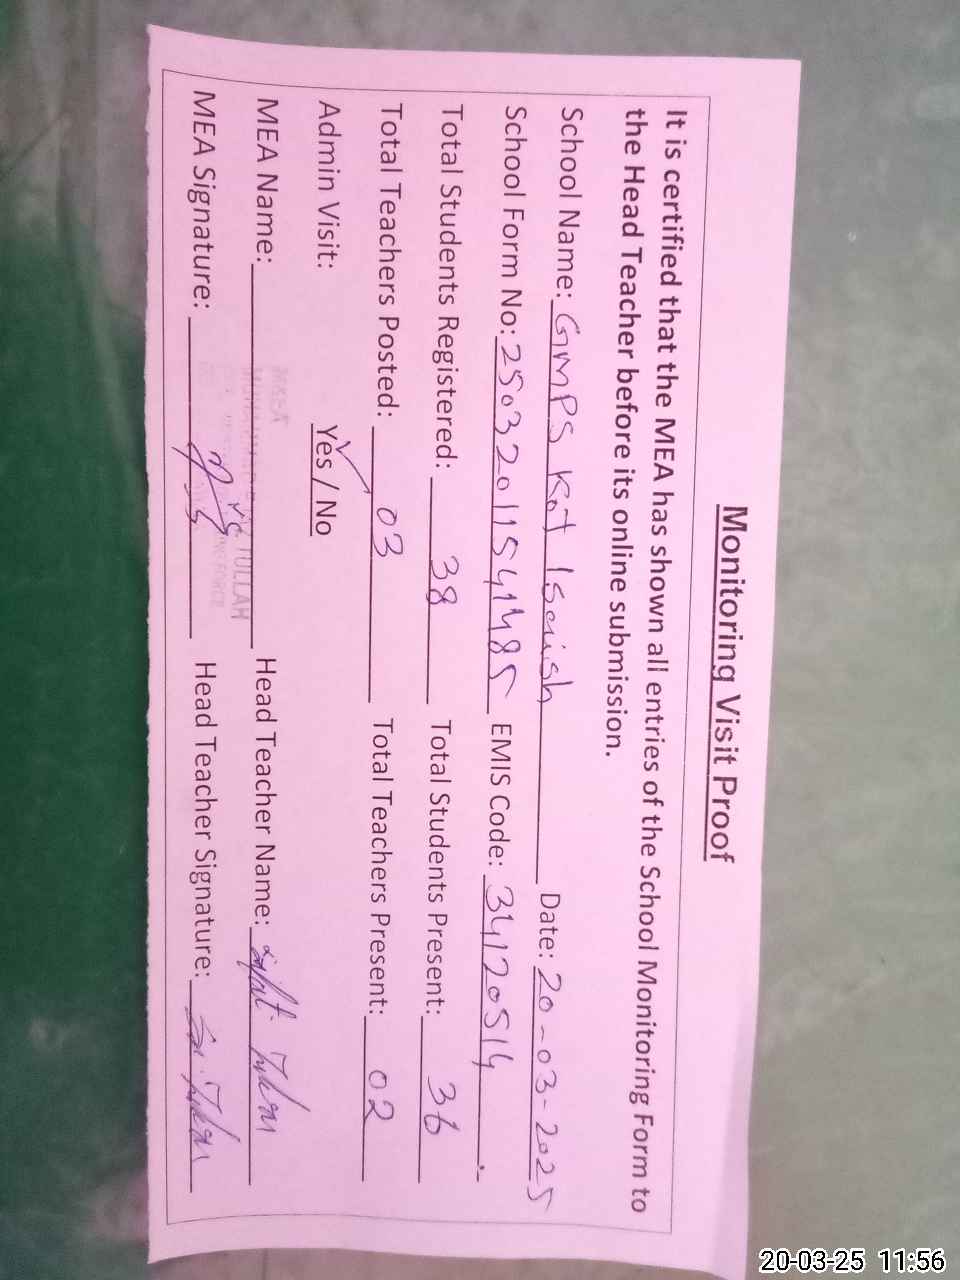 Monitoring Visit Proof
It is certified that the MEA has shown all entries of the School Monitoring Form to
the Head Teacher before its online submission.
School Name: GMPS Kot Date: 20-03-2025
School Form No: 25032011541485 EMIS Code: 34120514
Total Students Registered: 38 Total Students Present: 36
Total Teachers Posted: 03 Total Teachers Present: 02
Admin Visit: Yes / No
MEA Name: Head Teacher Name:
MEA Signature: Head Teacher Signature:
20-03-25 11:56